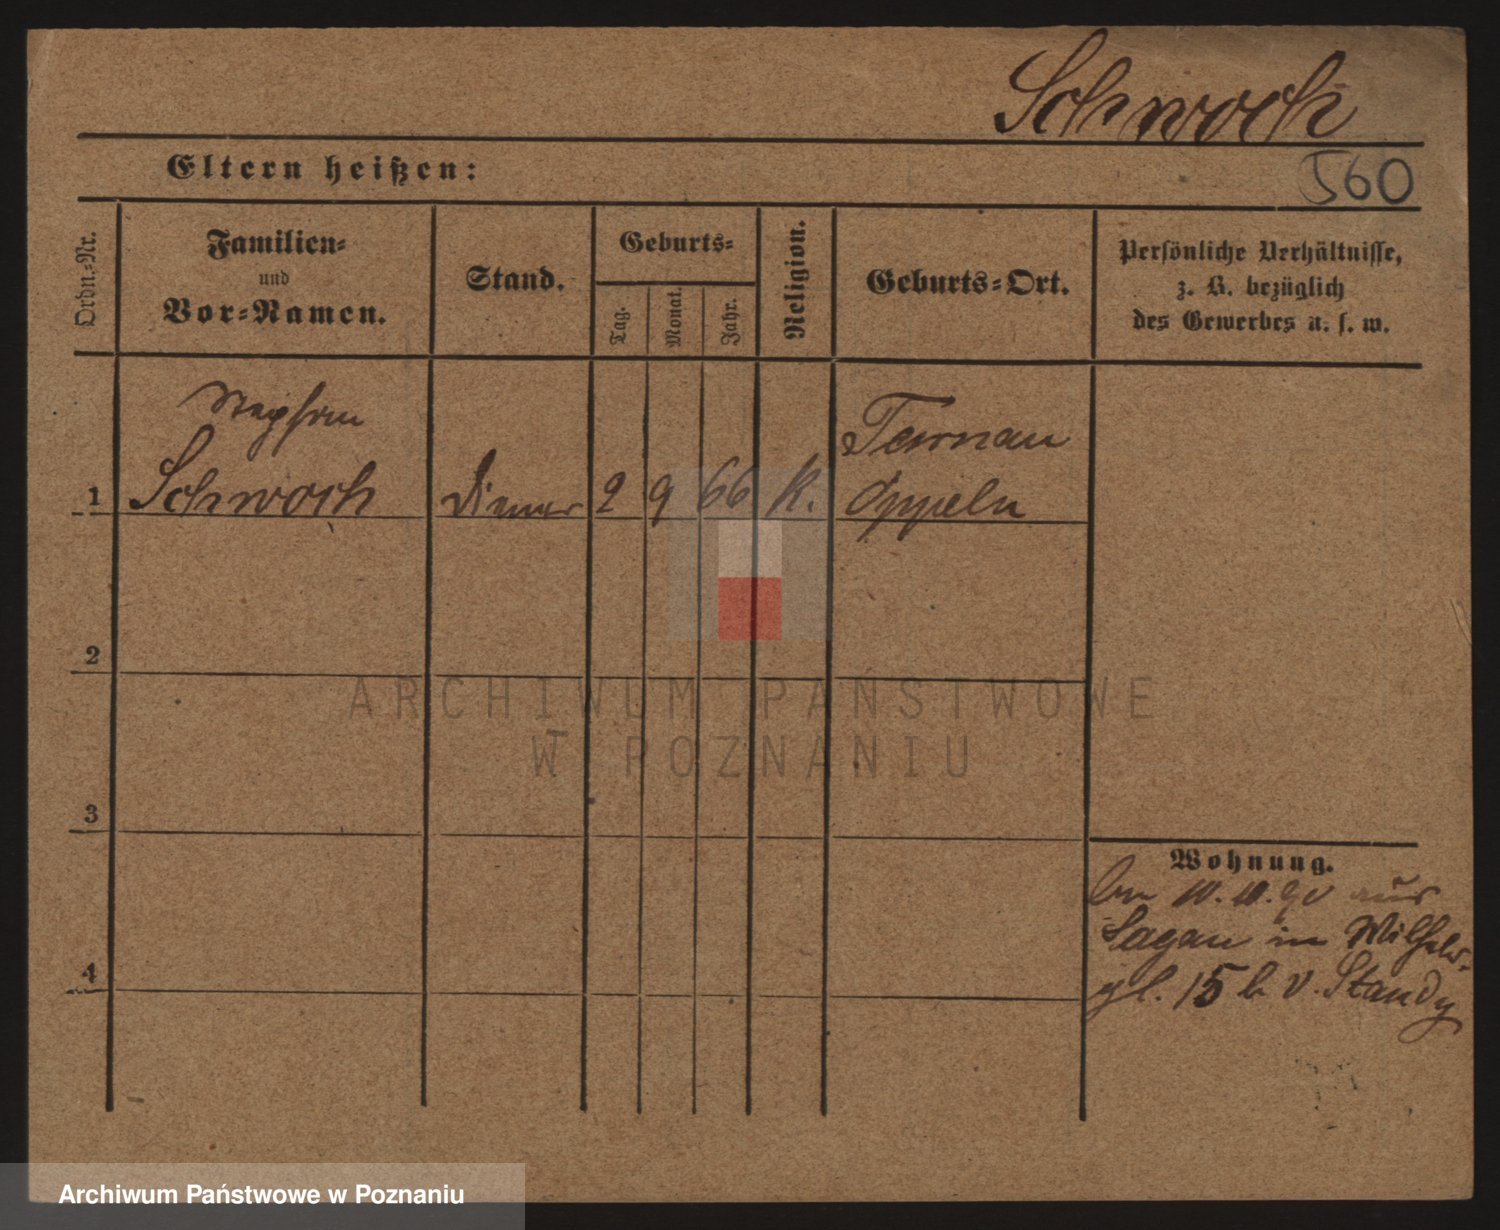 Schwoch
Eltern heißen:
560
Ordn.-Nr.
Familien-
und
Vor-Namen.
Stand.
Geburts-
Tag.
Monat.
Jahr.
Religion.
Geburts-Ort.
Persönliche Verhältnisse,
z. B. bezüglich
des Gewerbes u. s. w.
Stephan
Tarnau
1 Schwoch Diener 2 9 66 K. Oppeln
2
3
4
Wohnung.
10. 10. 90 aus
Sagan in Wilhelm-
pl. 15 b. v. Standy
ARCHIWUM PAŃSTWOWE
W POZNANIU
Archiwum Państwowe w Poznaniu